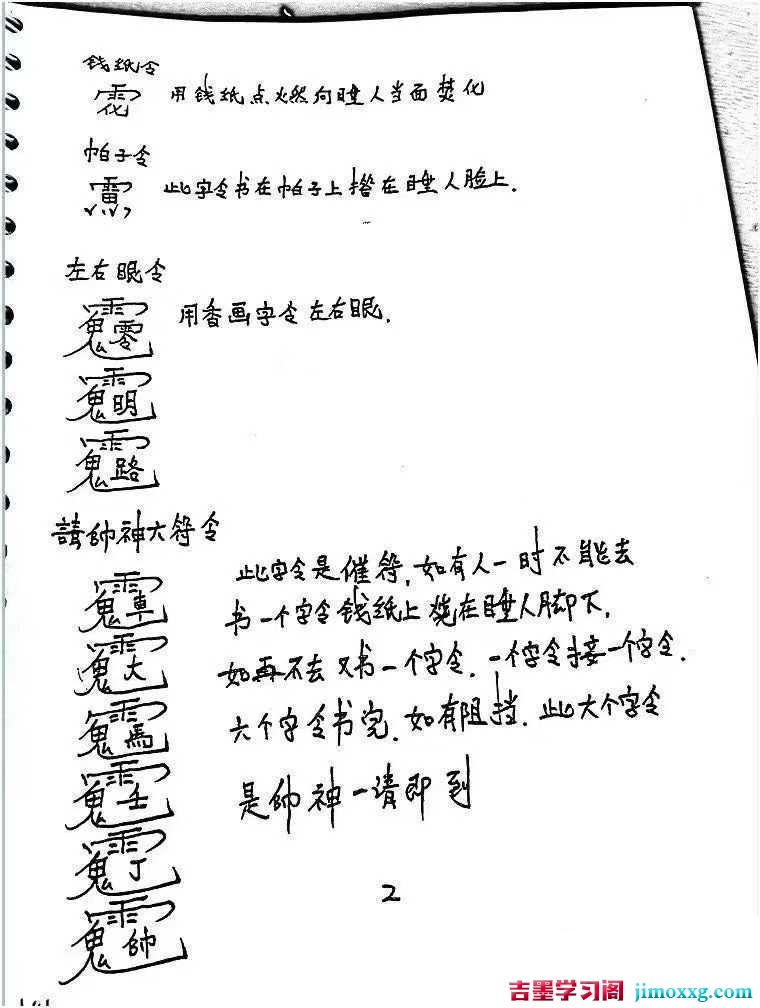 钱纸令
用钱纸点火燃向睡人当面焚化
帕子令
此字令书在帕子上搭在睡人脸上.
左右眼令
用香画字令左右眼.
請帥神六符令
此字令是催符,如有人一时不能去
书一个字令钱纸上烧在睡人脚下,
如再不去又书一个字令.一个字令接一个字令.
六个字令书完.如有阻挡.此六个字令
是帥神一请即到
2
吉墨学习阁 jimoxxg.com